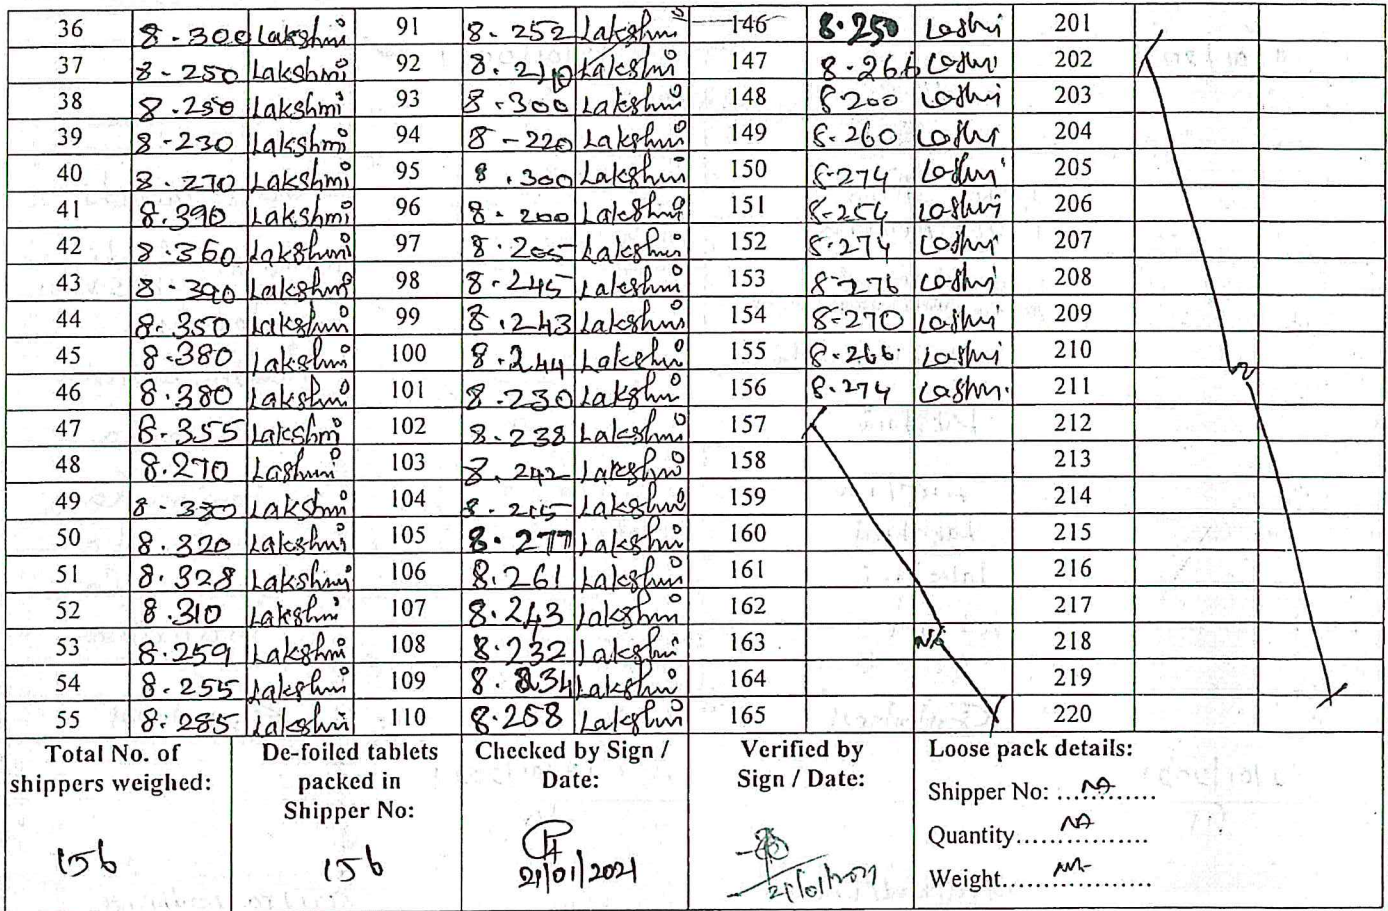 36 8.300 Lakshmi 91 8.252 Lakshmi 146 8.250 Lashi 201
37 8-250 Lakshmi 92 8.210 Lakshmi 147 8-266 Lashi 202
38 8.250 Lakshmi 93 8-300 Lakshmi 148 8-200 Lashi 203
39 8-230 Lakshmi 94 8-220 Lakshmi 149 8-260 Lashi 204
40 8.270 Lakshmi 95 8.300 Lakshmi 150 8-274 Lashi 205
41 8.390 Lakshmi 96 8-200 Lakshmi 151 8-254 Lashi 206
42 8.360 Lakshmi 97 8.205 Lakshmi 152 8.274 Lashi 207
43 8-390 Lakshmi 98 8-245 Lakshmi 153 8-276 Lashi 208
44 8.350 Lakshmi 99 8.243 Lakshmi 154 8-270 Lashi 209
45 8.380 Lakshmi 100 8.244 Lakshmi 155 8-266 Lashi 210
46 8.380 Lakshmi 101 8.230 Lakshmi 156 8.274 Lashi 211
47 8-355 Lakshmi 102 8.238 Lakshmi 157 212
48 8.270 Lashmi 103 8.242 Lakshmi 158 213
49 8-330 Lakshmi 104 8.215 Lakshmi 159 214
50 8.320 Lakshmi 105 8.277 Lakshmi 160 215
51 8.328 Lakshmi 106 8.261 Lakshmi 161 216
52 8.310 Lakshmi 107 8.243 Lakshmi 162 217
53 8.259 Lakshmi 108 8.232 Lakshmi 163 NA 218
54 8.255 Lakshmi 109 8.234 Lakshmi 164 219
55 8.285 Lakshmi 110 8.258 Lakshmi 165 220
Total No. of shippers weighed:
156
De-foiled tablets packed in Shipper No:
156
Checked by Sign / Date:
21/01/2021
Verified by Sign / Date:
21/01/2021
Loose pack details:
Shipper No: ...NA...........
Quantity......NA...........
Weight........NA..............